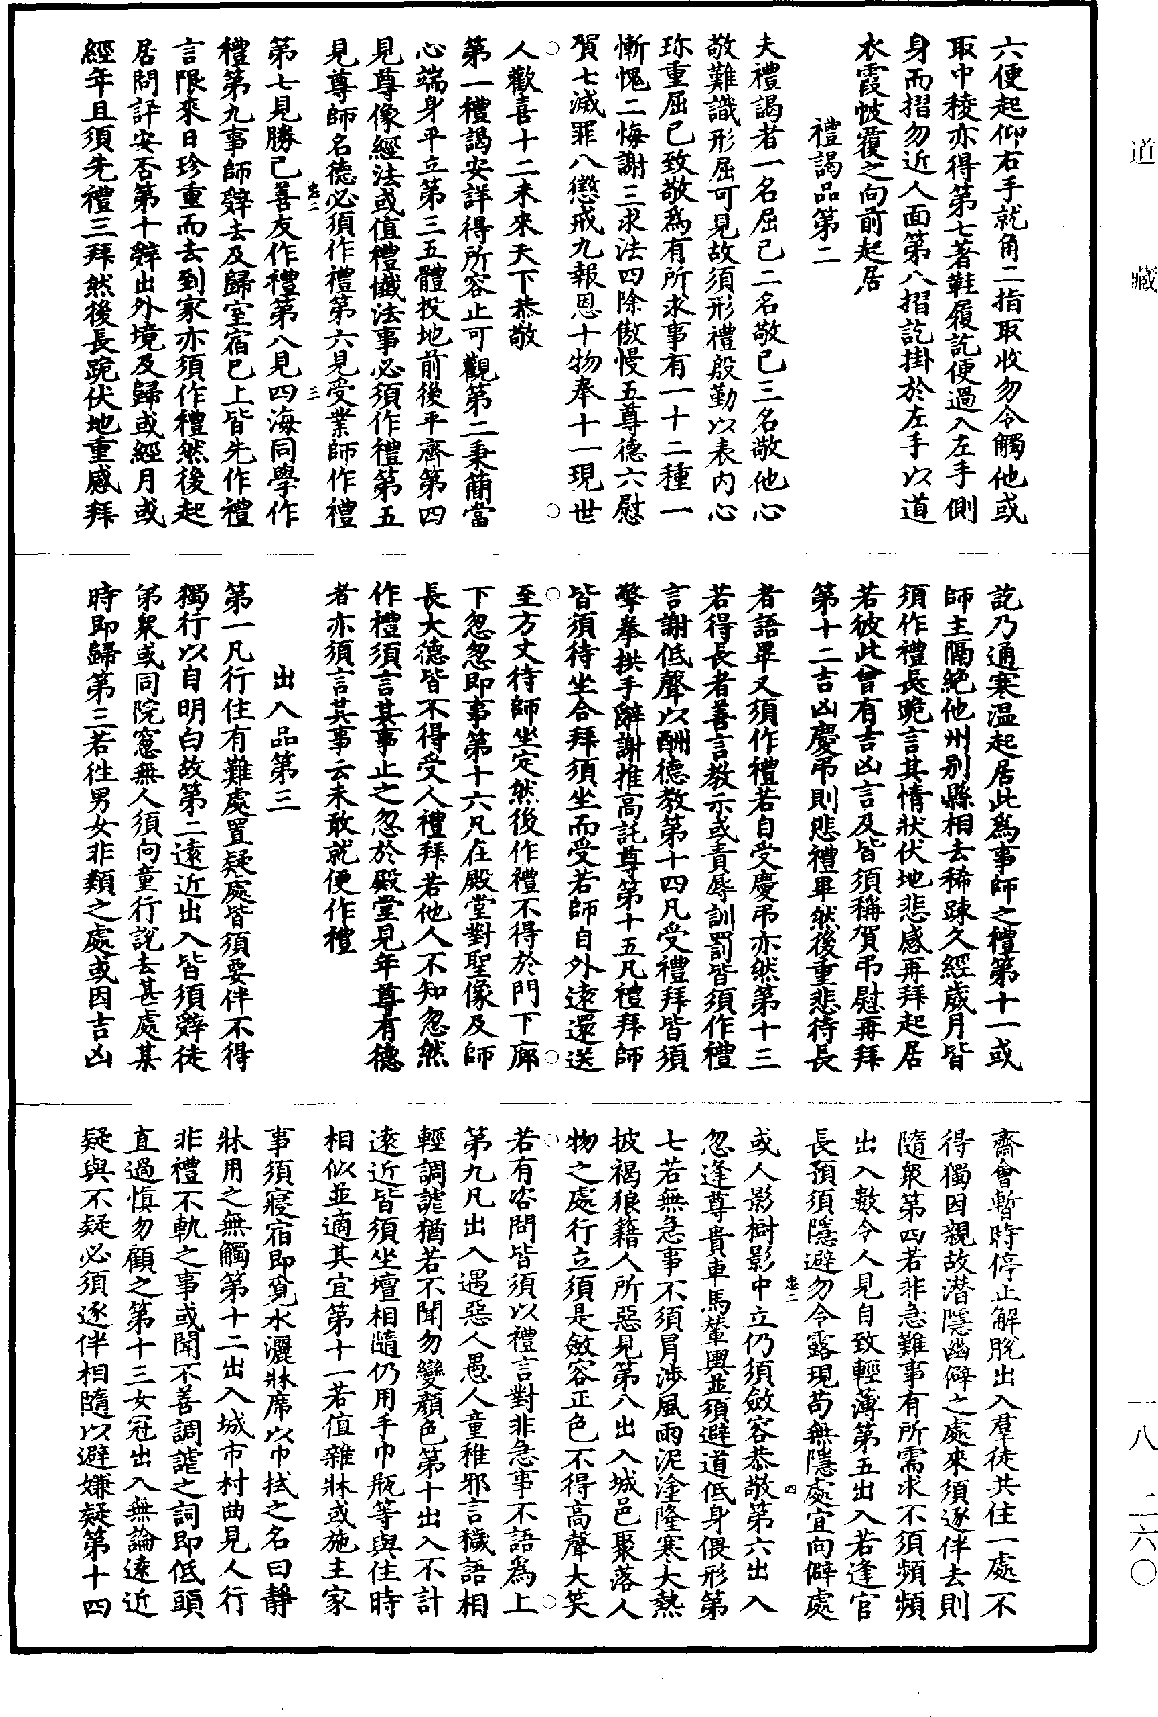 六便起仰右手就角二指取收勿令觸他或
取中稜亦得第七著鞋履訖便過入左手側
身而摺勿近人面第八摺訖掛於左手以道
衣霞帔覆之向前起居
禮謁品第二
夫禮謁者一名屈己二名敬己三名敬他心
敬難識形屈可見故須形禮殷勤以表内心
珎重屈己致敬為有所求事有一十二種一
慚愧二悔謝三求法四除傲慢五尊德六慰
賀七滅罪八懲戒九報恩十物奉十一現世
人歡喜十二未來天下恭敬
第一禮謁安詳得所容止可觀第二秉簡當
心端身平立第三五體投地前後平齊第四
見尊像經法或值禮懺法事必須作禮第五
見尊師名德必須作禮第六見受業師作禮
第七見勝己善友作禮第八見四海同學作
禮第九事師辤去及歸室宿已上皆先作禮
言限來日珍重而去到家亦須作禮然後起
居問評安否第十辤出外境及歸或經月或
經年且須先禮三拜然後長跪伏地重感拜
訖乃通寒温起居此為事師之禮第十一或
師主隔絶他州别縣相去稀踈久經歲月皆
須作禮長跪言其情狀伏地悲感再拜起居
若彼此曾有吉凶言及皆須稱賀弔慰再拜
第十二吉凶慶弔則悲禮畢然後重悲待長
者語畢又須作禮若自受慶弔亦然第十三
若得長者善言教示或責辱訓罰皆須作禮
言謝低聲以酬德教第十四凡受禮拜皆須
擎拳拱手辭謝推高託尊第十五凡禮拜師
皆須待坐合拜須坐而受若師自外遠還送
至方丈待師坐定然後作禮不得於門下廊
下忽忽即事第十六凡在殿堂對聖像及師
長大德皆不得受人禮拜若他人不知忽然
作禮須言某事止之忽於殿堂見年尊有德
者亦須言其事云未敢就便作禮
出入品第三
第一凡行住有難處置疑處皆須要伴不得
獨行以自明白故第二遠近出入皆須辤徒
弟衆或同院寮無人須向童行說去甚處某
時即歸第三若徃男女非類之處或因吉凶
齋會暫時停止解脫出入羣徒共住一處不
得獨因親故潛隱幽僻之處來須逐伴去則
隨衆第四若非急難事有所需求不須頻頻
出入數令人見自致輕薄第五出入若逢官
長預須隱避勿令露現苟無隱處宜向僻處
或人影樹影中立仍須斂容恭敬第六出入
忽逢尊貴車馬輦輿並須避道低身偎形第
七若無急事不須冐涉風雨泥塗隆寒大熱
披褐狼籍人所惡見第八出入城邑聚落人
物之處行立須是斂容正色不得高聲大笑
若有咨問皆須以禮言對非急事不語為上
第九凡出入遇惡人愚人童稚邪言穢語相
輕調謔猶若不聞勿變顏色第十出入不計
遠近皆須坐壇相隨仍用手巾瓶等與住時
相似並適其宜第十一若值雜牀或施主家
事須寢宿即覔水灑牀席以巾拭之名曰靜
牀用之無觸第十二出入城市村曲見人行
非禮不軌之事或聞不善調謔之詞即低頭
直過慎勿顧之第十三女冠出入無論遠近
疑與不疑必須逐伴相隨以避嫌疑第十四
道藏
一八 二六〇